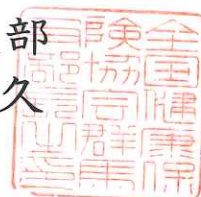 部久
全国健康保
険協会群馬
支部長之印